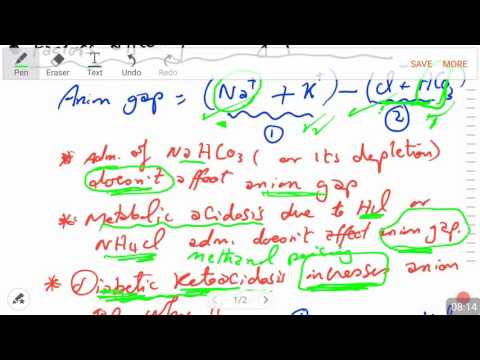 Pen Eraser Text Undo Redo SAVE MORE
Anion gap = (Na+ + K+) - (Cl + HCO3)
① ②
* Adm. of NaHCO3 ( or its depletion)
doesn't affect anion gap
* Metabolic acidosis due to HCl or
NH4Cl adm. doesn't affect anion gap.
methanol
* Diabetic Ketoacidosis increases anion
1/2
08:14